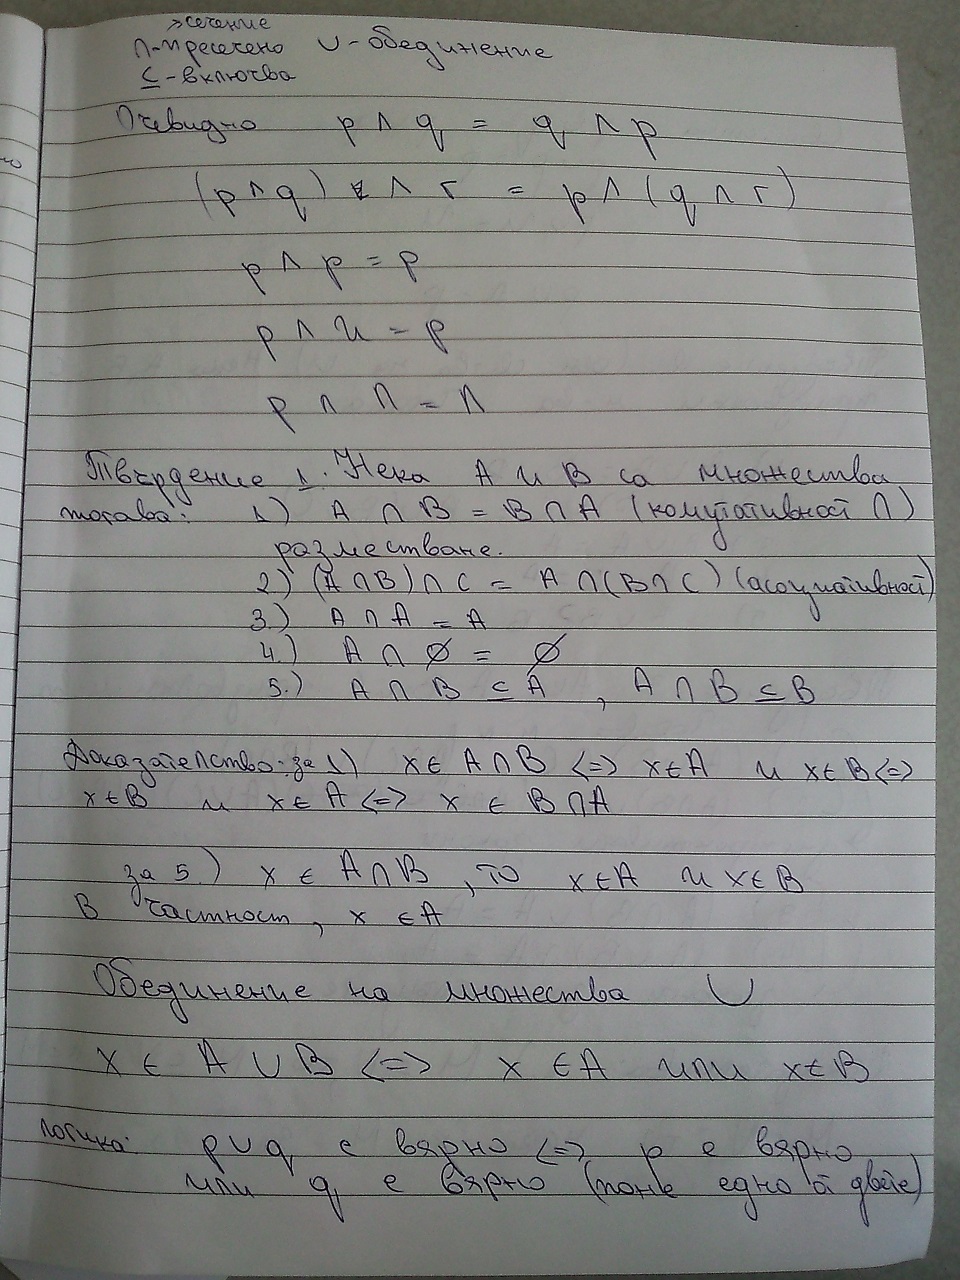 >сечение
∩-пресечено ∪-обединение
⊆-включва
Очевидно p ∧ q = q ∧ p
(p ∧ q) ∧ r = p ∧ (q ∧ r)
p ∧ p = p
p ∧ и = p
p ∧ л = л
Твърдение 1. Нека A и B са множества
тогава: 1) A ∩ B = B ∩ A (комутативност ∩)
разместване.
2) (A ∩ B) ∩ C = A ∩ (B ∩ C) (асоциативност)
3.) A ∩ A = A
4.) A ∩ ∅ = ∅
5.) A ∩ B ⊆ A , A ∩ B ⊆ B
Доказателство: за 1) x ∈ A ∩ B <=> x ∈ A и x ∈ B <=>
x ∈ B и x ∈ A <=> x ∈ B ∩ A
за 5.) x ∈ A ∩ B , то x ∈ A и x ∈ B
В частност, x ∈ A
Обединение на множества ∪
x ∈ A ∪ B <=> x ∈ A или x ∈ B
логика: p ∪ q е вярно <=> p е вярно
или q е вярно (поне едно от двете)